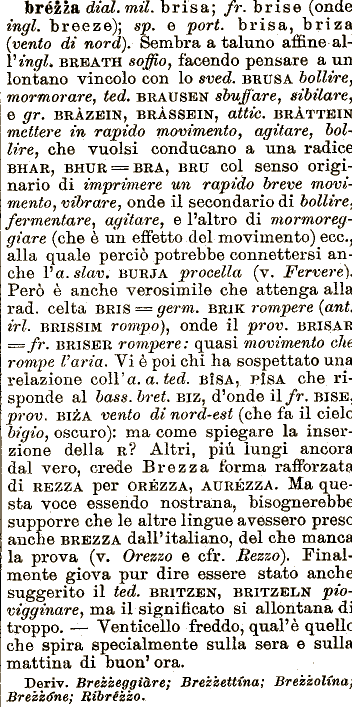 bréżża dial. mil. brisa; fr. brise (onde
ingl. breeze); sp. e port. brisa, briza
(vento di nord). Sembra a taluno affine al-
l'ingl. BREATH soffio, facendo pensare a un
lontano vincolo con lo sved. BRUSA bollire,
mormorare, ted. BRAUSEN sbuffare, sibilare,
e gr. BRÀZEIN, BRÀSSEIN, attic. BRÀTTEIN
mettere in rapido movimento, agitare, bol-
lire, che vuolsi conducano a una radice
BHAR, BHUR = BRA, BRU col senso origi-
nario di imprimere un rapido breve movi-
mento, vibrare, onde il secondario di bollire,
fermentare, agitare, e l'altro di mormoreg-
giare (che è un effetto del movimento) ecc.,
alla quale perciò potrebbe connettersi an-
che l'a. slav. BURJA procella (v. Fervere).
Però è anche verosimile che attenga alla
rad. celta BRIS = germ. BRIK rompere (ant.
irl. BRISSIM rompo), onde il prov. BRISAR
= fr. BRISER rompere: quasi movimento che
rompe l'aria. Vi è poi chi ha sospettato una
relazione coll'a. a. ted. BÎSA, PÎSA che ri-
sponde al bass. bret. BIZ, d'onde il fr. BISE,
prov. BIŻA vento di nord-est (che fa il cielo
bigio, oscuro): ma come spiegare la inser-
zione della R? Altri, piú lungi ancora
dal vero, crede Brezza forma rafforzata
di REZZA per ORÉZZA, AURÉZZA. Ma que-
sta voce essendo nostrana, bisognerebbe
supporre che le altre lingue avessero preso
anche BREZZA dall'italiano, del che manca
la prova (v. Orezzo e cfr. Rezzo). Final-
mente giova pur dire essere stato anche
suggerito il ted. BRITZEN, BRITZELN pio-
vigginare, ma il significato si allontana di
troppo. — Venticello freddo, qual'è quello
che spira specialmente sulla sera e sulla
mattina di buon' ora.
Deriv. Breżżeggiàre; Breżżettína; Breżżolína;
Breżżóne; Ribréżżo.